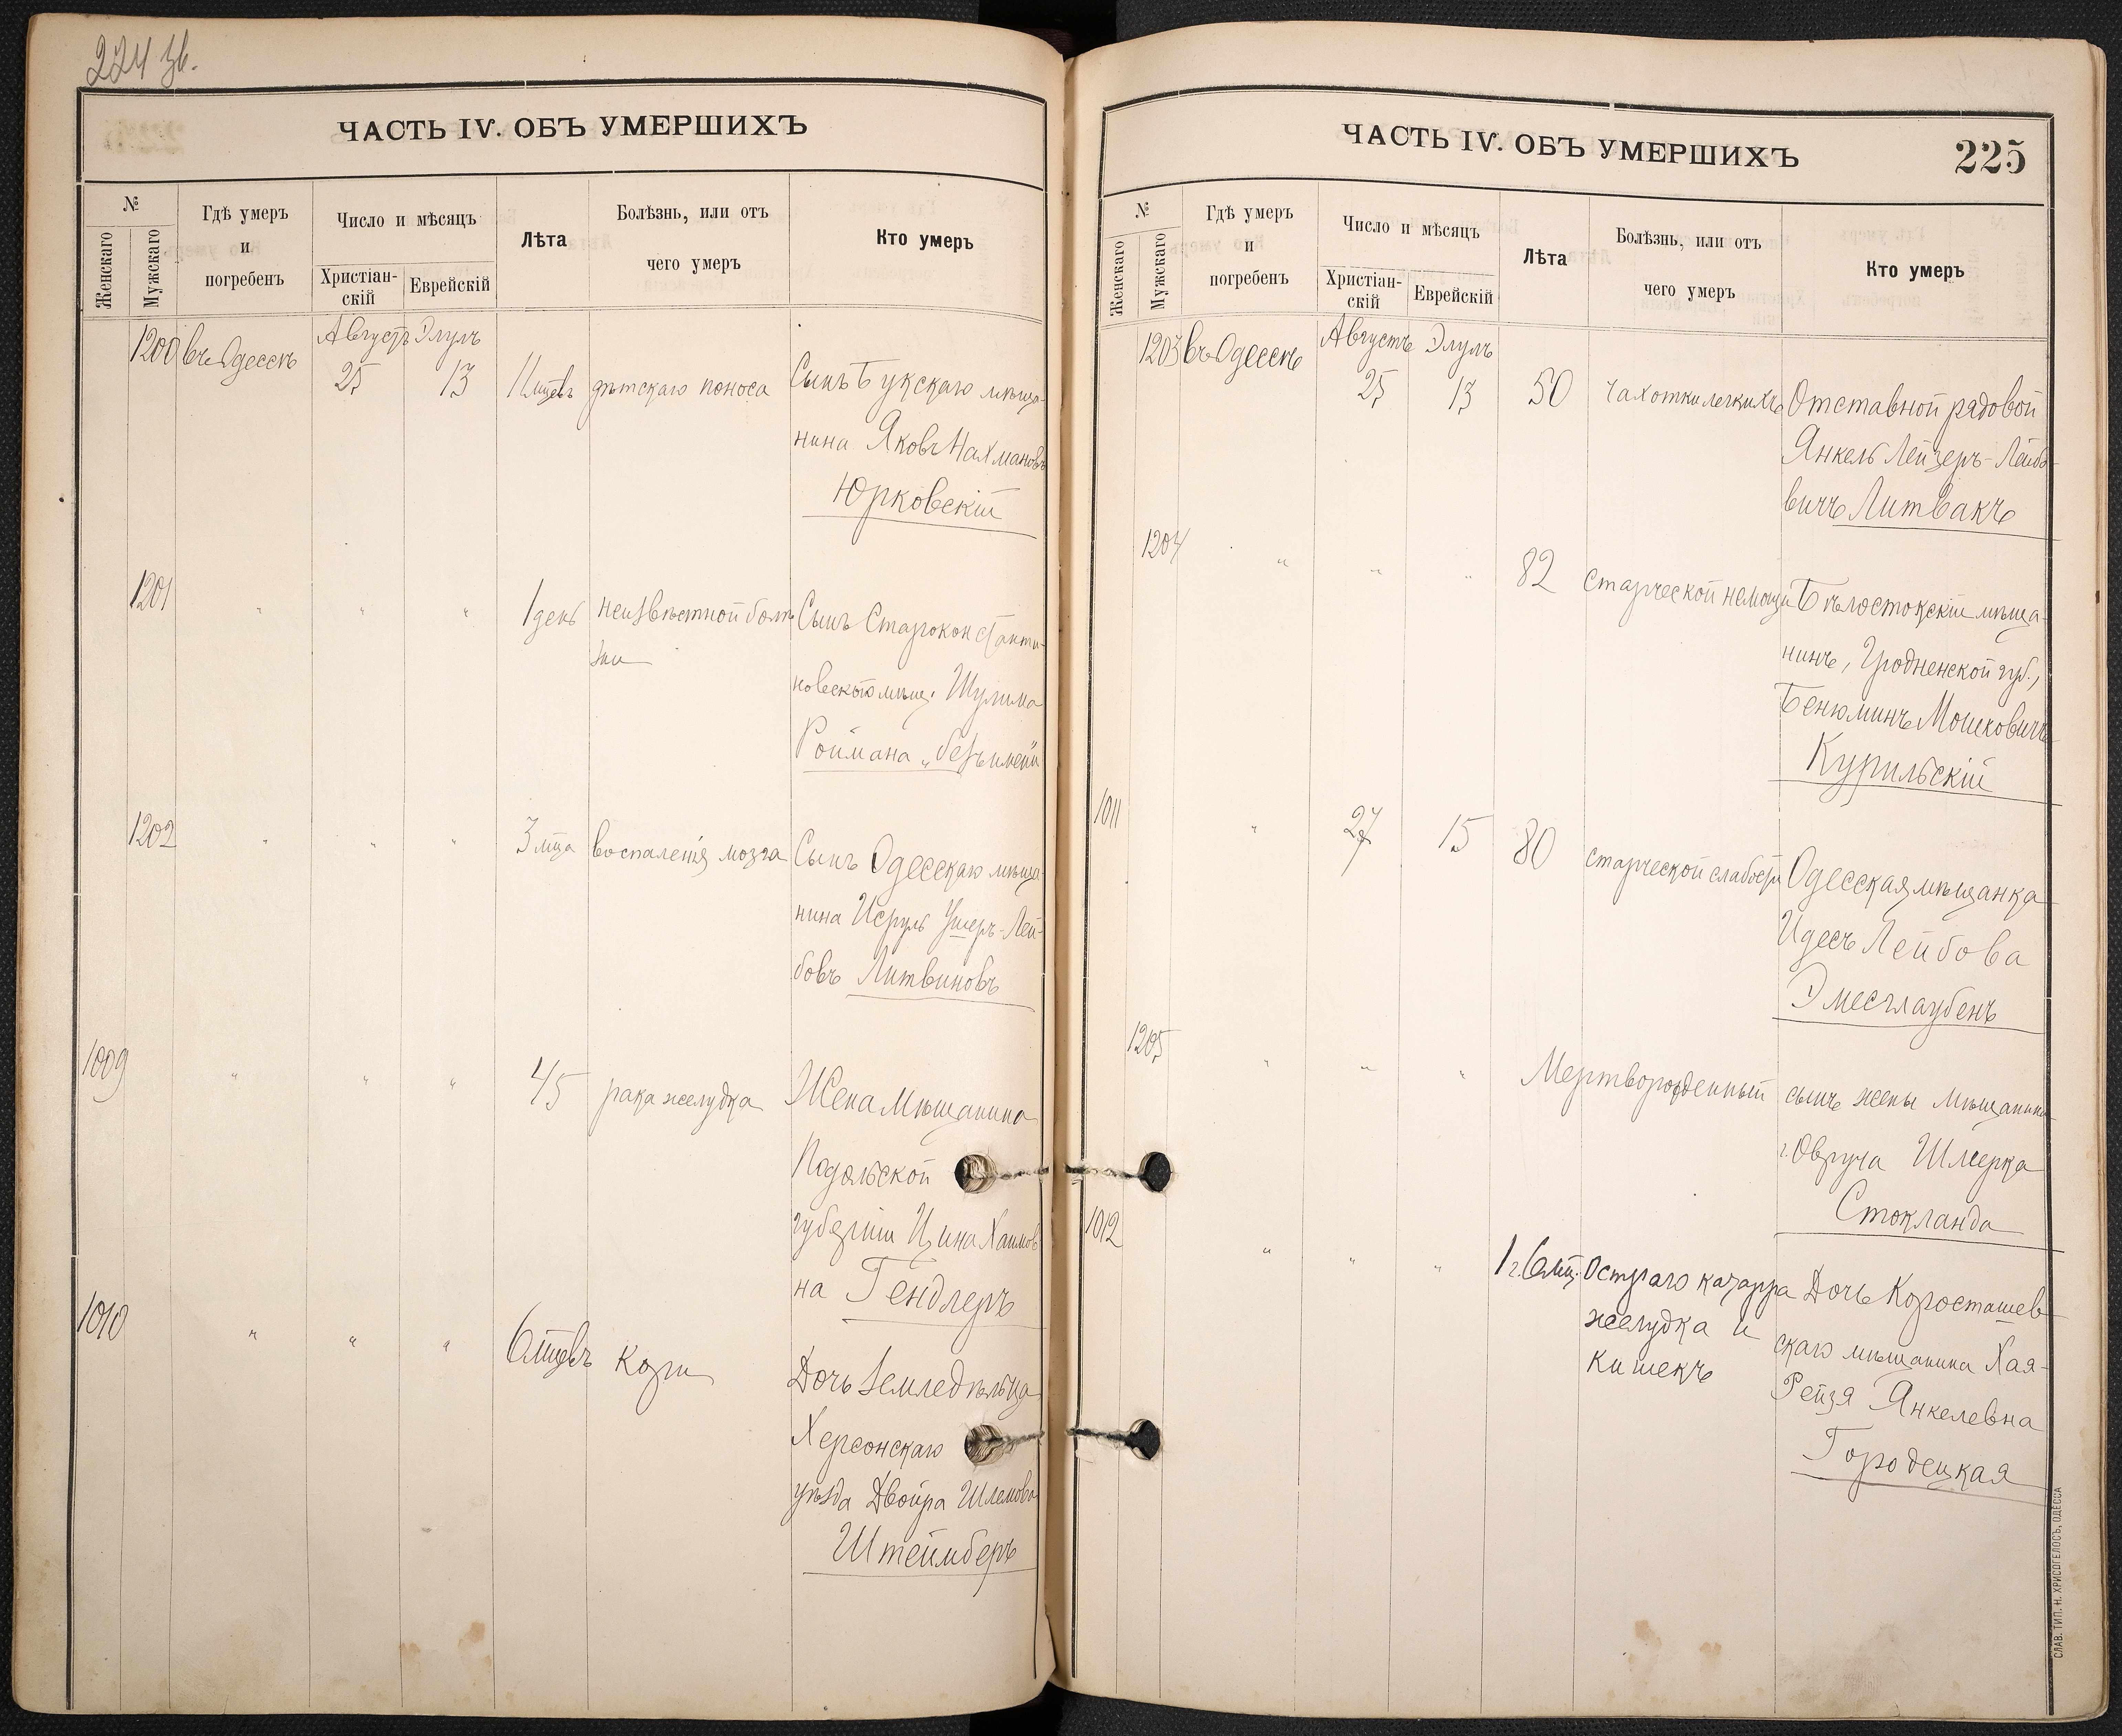 224 зв.
ЧАСТЬ IV. ОБЪ УМЕРШИХЪ
№
Женскаго
Мужскаго
Гдѣ умеръ
и
погребенъ
Число и мѣсяцъ
Христіан-
скій
Еврейскій
Лѣта
Болѣзнь, или отъ
чего умеръ
Кто умеръ
Августъ Элулъ
1200 въ Одессѣ 25 13 11 мцевъ дѣтскаго поноса Сынъ Букскаго мѣща-
нина Яковъ Нахмановъ
Юрковскій
1201 " " " 1 день неизвѣстной болѣ Сынъ Староконстанти-
зни
новскаго мѣщ. Шулима
Роймана „безъимени
1202 " " " 3 мца воспаленія мозга Сынъ Одесскаго мѣща-
нина Исруль Ушеръ-Лей-
бовъ Литвиновъ
1009 " " " 45 рака желудка Жена Мѣщанина
Подольской
губерніи Цина Хаимов
на Гендлеръ
1010 " " " 6 мцевъ кори Дочь Земледѣльца
Херсонскаго
уѣзда Двойра Шлемова
Штеймберъ
ЧАСТЬ IV. ОБЪ УМЕРШИХЪ
225
№
Женскаго
Мужскаго
Гдѣ умеръ
и
погребенъ
Число и мѣсяцъ
Христіан-
скій
Еврейскій
Лѣта
Болѣзнь, или отъ
чего умеръ
Кто умеръ
Августъ Элулъ
1203 въ Одессѣ 25 13 50 чахотки легкихъ Отставной рядовой
Янкель Лейзеръ-Лейбо-
вичъ Литвакъ
1204 " " " 82 старческой немощи Бѣлостокскій мѣща-
нинъ, Гродненской губ.,
Бенюминъ Мошковичъ
Курильскій
1011 " 27 15 80 старческой слабости Одесская мѣщанка
Идесъ Лейбова
Эмесглаубенъ
1205 " " " Мертворожденный сынъ жены мѣщанина
г. Овруча Шмерка
Стокланда
1012 " " " 1 г. 6 мц. Остраго катарра Дочь Коросташев-
желудка и
скаго мѣщанина Хая-
кишекъ
Рейзя Янкелевна
Городецкая
СЛАВ. ТИП. Н. ХРИСОГЕЛОСЪ, ОДЕССА